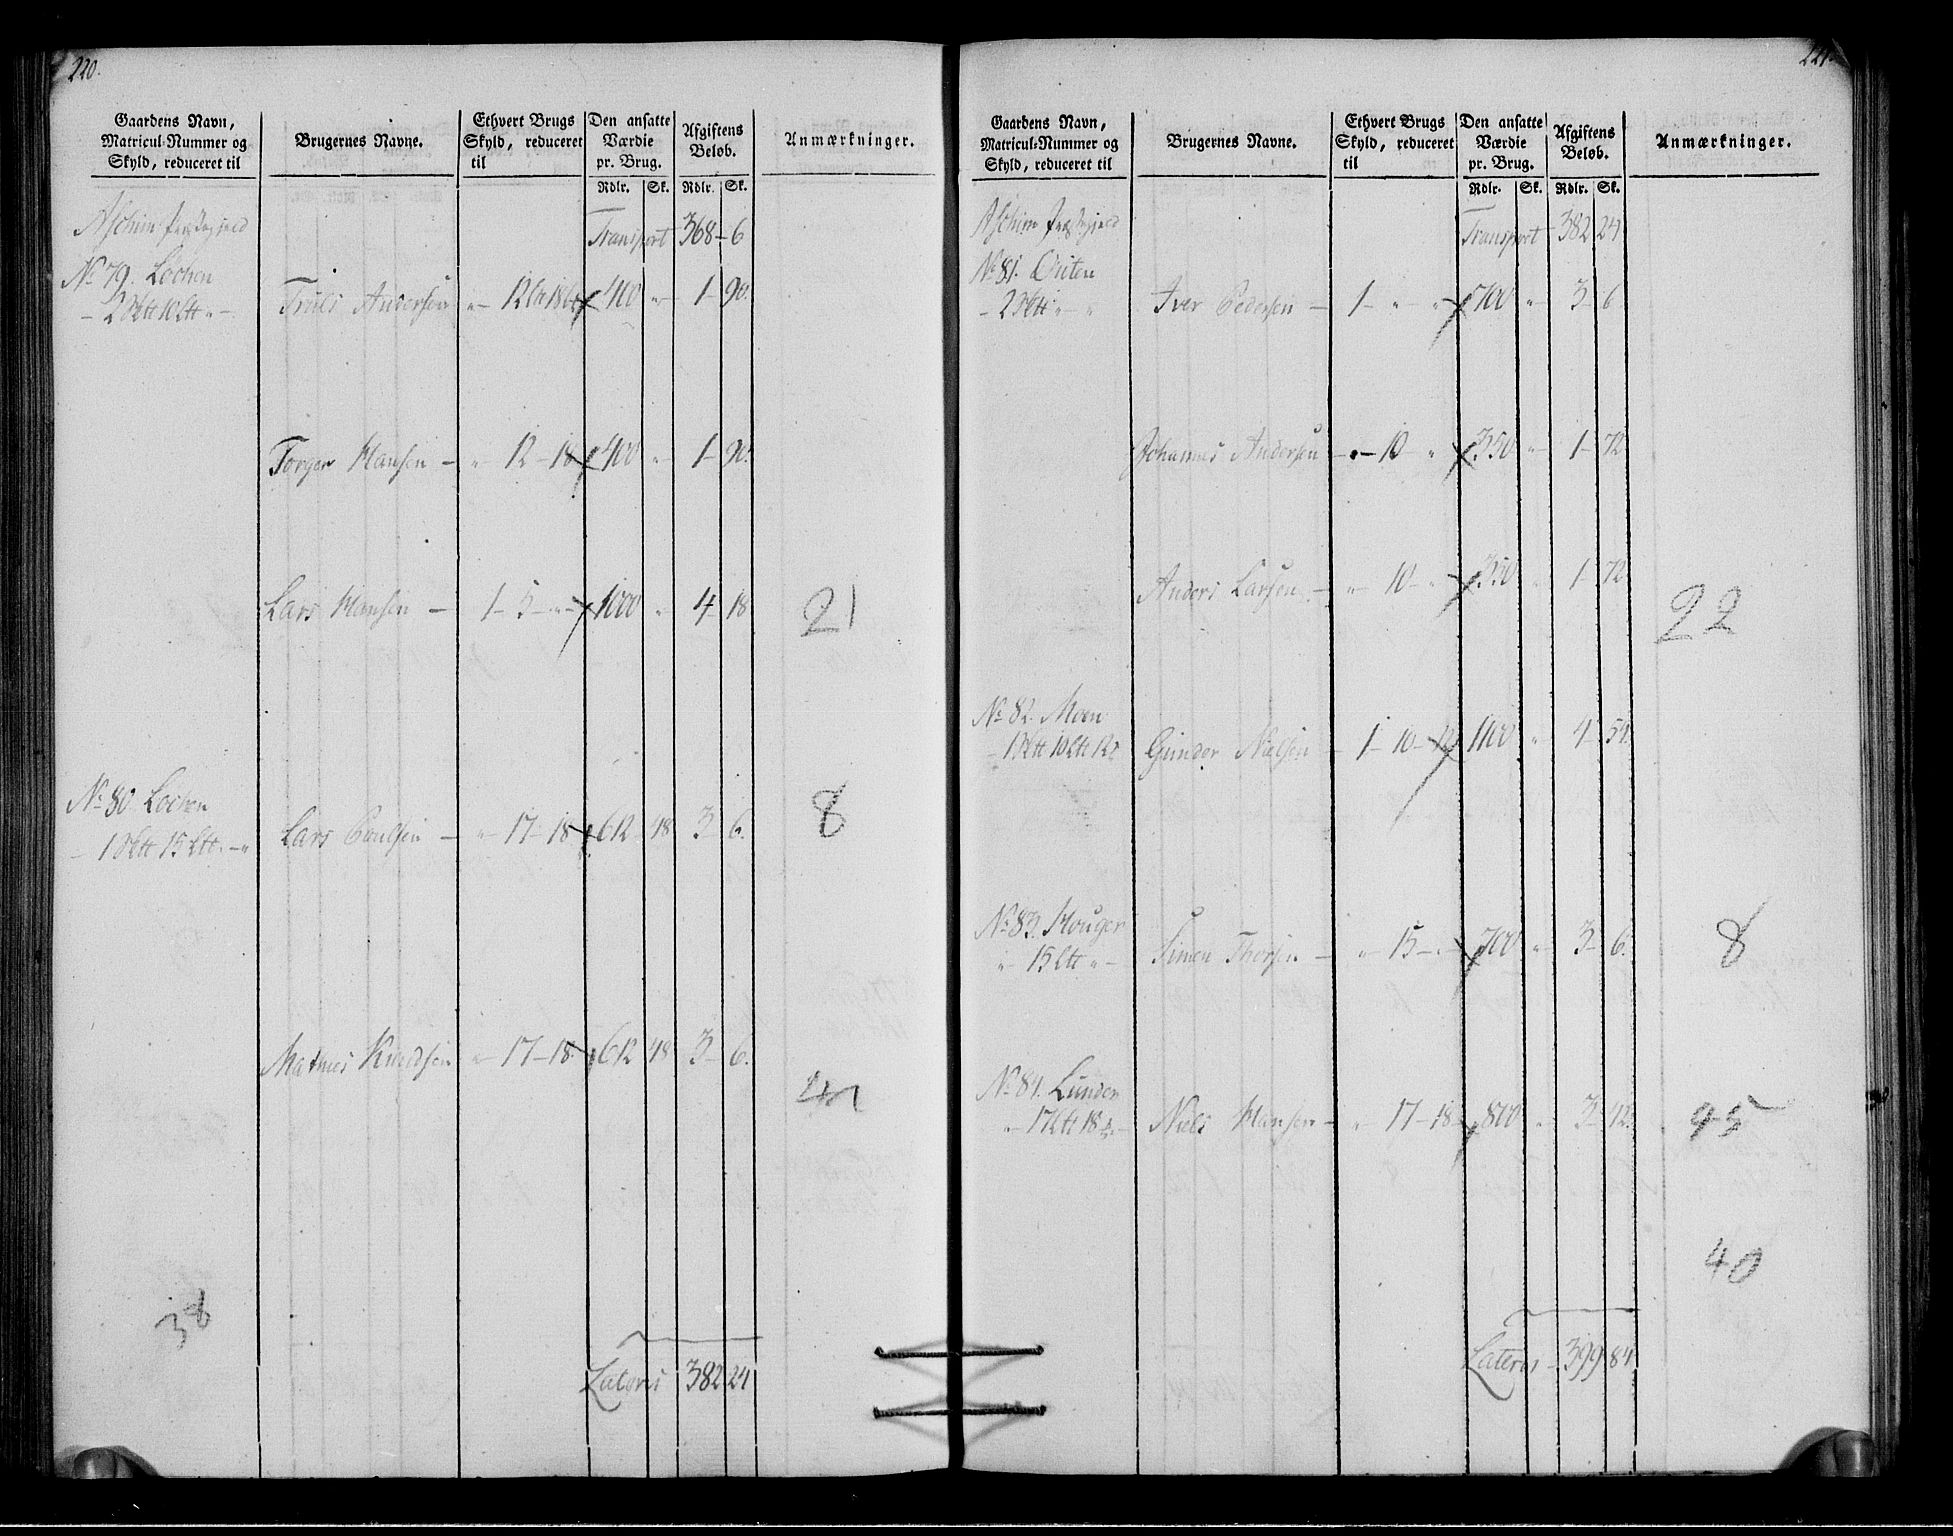 220.
Gaardens Navn, Matricul-Nummer og Skyld, reduceret til
Brugernes Navne.
Ethvert Brugs Skyld, reduceret til
Den ansatte Værdie pr. Brug.
Afgiftens Beløb.
Anmærkninger.
Rdlr. Sk. Rdlr. Sk.
Aschim Præstegjeld
Transport 368 - 6
No 79. Lochen
Truls Andersen 400 1 - 90.
Torger Hansen - 12 - 18 400 1 - 90.
Lars Hansen - 1 - 5 - 1000 4 18
21
No 80. Lochen
Lars Poulsen - 17 - 18 612 48 3 - 6.
8
Mathies Knudsen 17 - 18 612 48 3 - 6.
38
Lateris 382 24
221
Gaardens Navn, Matricul-Nummer og Skyld, reduceret til
Brugernes Navne.
Ethvert Brugs Skyld, reduceret til
Den ansatte Værdie pr. Brug.
Afgiftens Beløb.
Anmærkninger.
Rdlr. Sk. Rdlr. Sk.
Aschim Præstegjeld
Transport 382 24
No 81.
Iver Pedersen - 1 - 700 3 - 6
Johannes Andersen - 10 350 1 - 72
Anders Larsen - 10 - 350 1 - 72
22
No 82. Moen
Gunder Nielsen 1 - 10 - 12 1100 4 - 54.
No 83. Houger
Simen Thorsen - 15 - 700 3 - 6.
8
No 84. Lunder
Niels Hansen - 17 - 18 - 800 3 - 42.
95
40
Lateris - 399 84